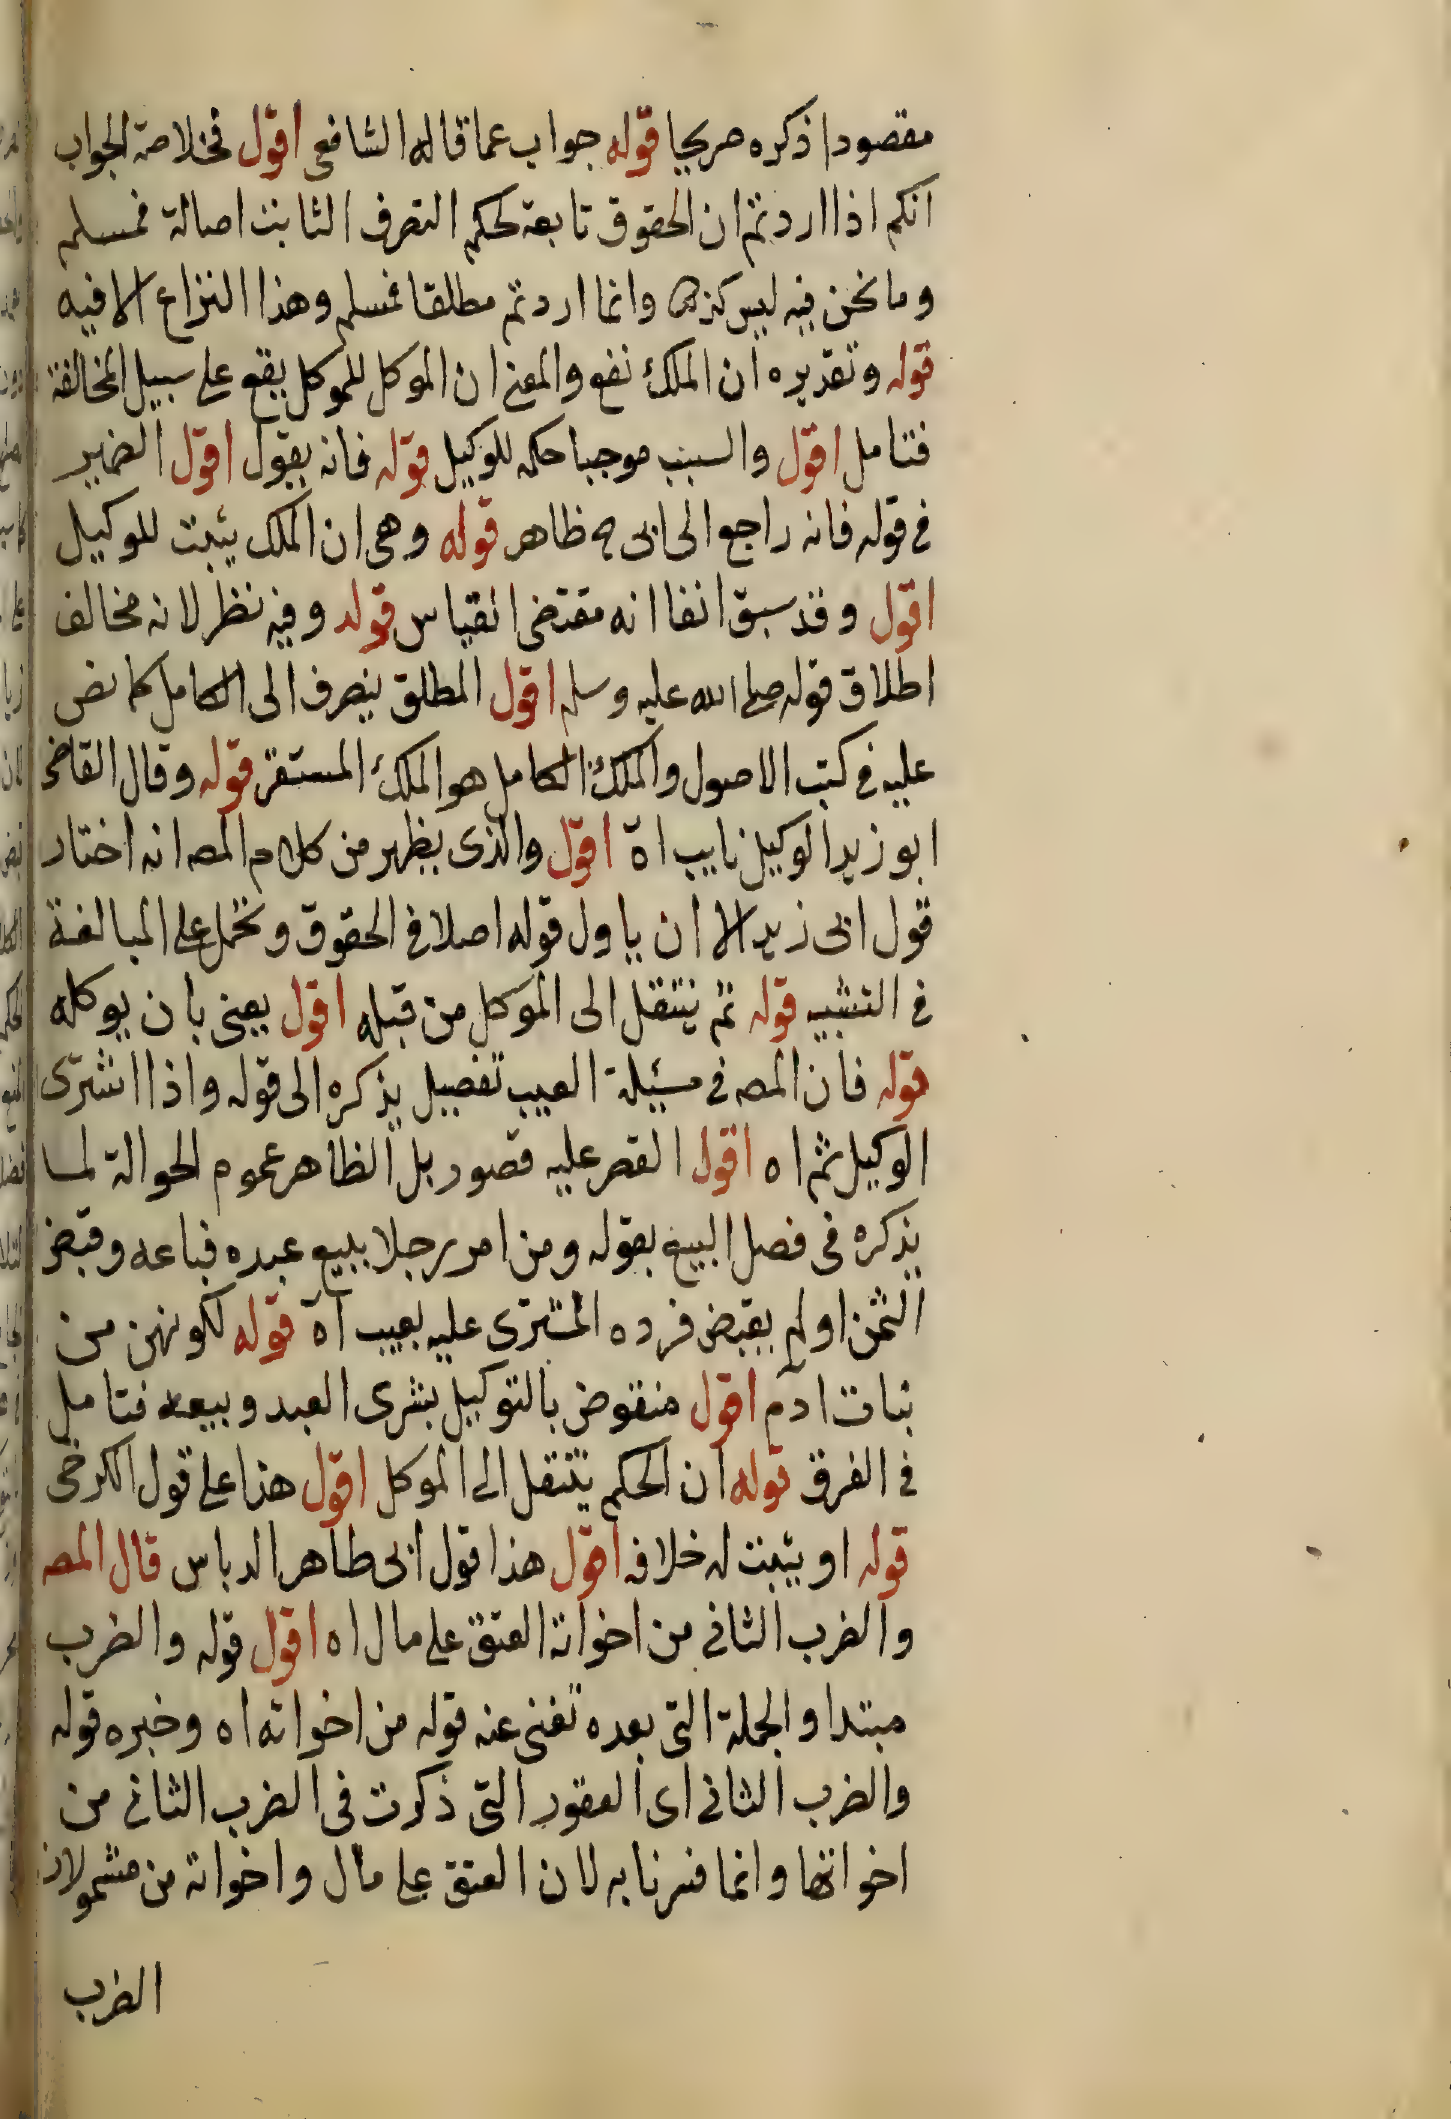 مقصودا ذكره صريحا قوله جواب عما قاله الشافعي اقول فخلاصة الجواب
انكم اذا اردتم ان الحقوق تابعة لحكم التصرف الثابت اصالة فمسلم
وما نحن فيه ليس كذلك وانما اردتم مطلقا فمسلم وهذا النزاع الا فيه
قوله وتقديره ان الملك نفع والمعنى ان الموكل للموكل يقع على سبيل المخالفة
فتامل اقول والسبب موجبا حكمه للوكيل قوله فانه يقول اقول الضمير
في قوله فانه راجع الى ابى ح ظاهر قوله وهى ان الملك يثبت للوكيل
اقول وقد سبق انفا انه مقتضى القياس قوله وفيه نظر لانه مخالف
اطلاق قوله صلى الله عليه وسلم اقول المطلق ينصرف الى الكامل كما نص
عليه في كتب الاصول والملك الكامل هو الملك المستقر قوله وقال القاضى
ابو زيد الوكيل نايب اه اقول والذى يظهر من كلام المصـ انه اختار
قول ابى زيد الا ان ياول قوله اصلا في الحقوق وتحمل على المبالغة
في التشبيه قوله ثم ينتقل الى الموكل من قبله اقول يعنى بان يوكله
قوله فان المصـ في مسئلة العيب تفصيل يذكره الى قوله واذا اشترى
الوكيل ثم اه اقول القصر عليه قصور بل الظاهر عموم الحوالة لما
يذكره فى فصل البيع بقوله ومن امر رجلا ببيع عبده فباعه وقبض
الثمن او لم يقبض فرده المشترى عليه بعيب اه قوله لكونهن من
بنات ادم اقول منقوض بالتوكيل بشرى العبد وبيعه فتامل
في الفرق قوله ان الحكم ينتقل الى الموكل اقول هذا على قول الكرخى
قوله او يثبت له خلافه اقول هذا قول ابى طاهر الدباس قال المصـ
والضرب الثانى من اخواته العتق على مال اه اقول قوله والضرب
مبتدا والجملة التى بعده تغنى عنه قوله من اخواته اه وخبره قوله
والضرب الثانى اى العقود التى ذكرت فى الضرب الثانى من
اخواتها وانما فسرنا به لان العتق على مال واخواته من مشمولات
الضرب